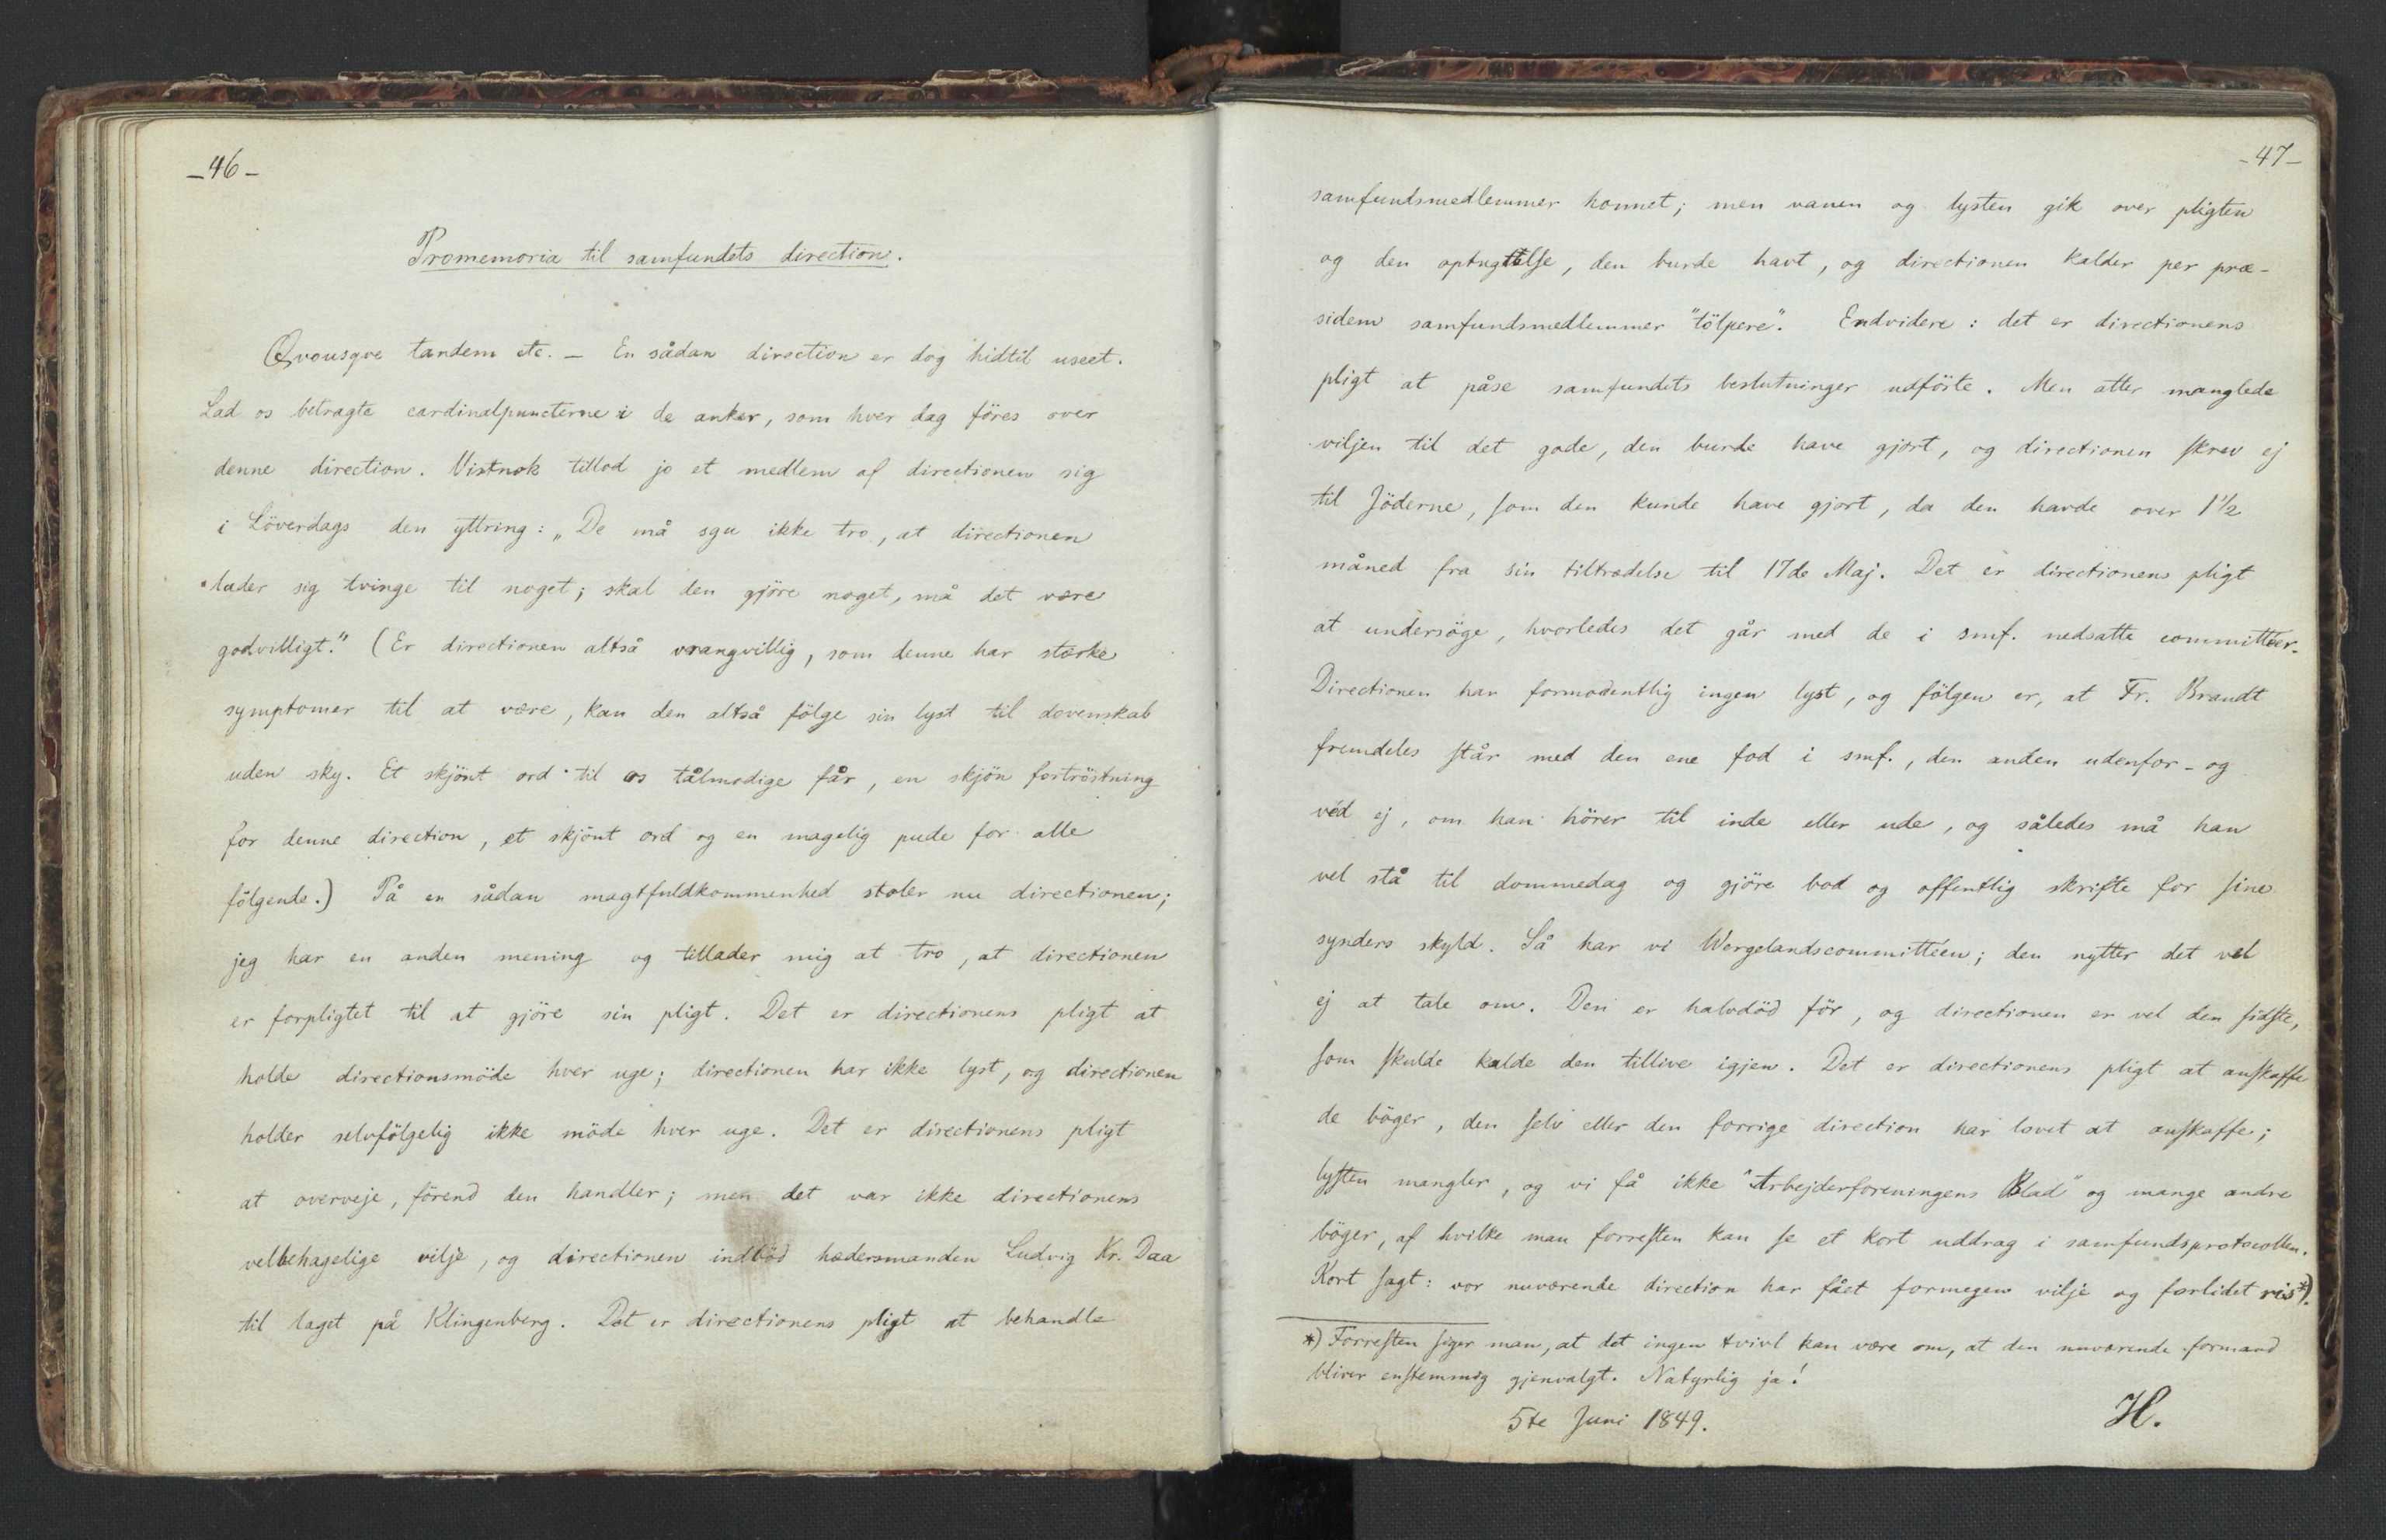 -46-
Promemoria til samfundets direction.
Qvousqve tandem etc. - En sådan direction er dog hidtil useet.
Lad os betragte cardinalpuncterne i de anker, som hver dag föres over
denne direction. Vistnok tillod jo et medlem af directionen sig
i Löverdags den yttring: „De må sgu ikke tro, at directionen
lader sig tvinge til noget; skal den gjöre noget, må det være
godvilligt." (Er directionen altså vrangvillig, som denne har stærke
symptomer til at være, kan den altså fölge sin lyst til dovenskab
uden sky. Et skjönt ord til os tålmodige får, en skjön fortröstning
for denne direction, et skjönt ord og en magelig pude for alle
fölgende.) På en sådan magtfuldkommenhed stoler nu directionen;
jeg har en anden mening og tillader mig at tro, at directionen
er forpligtet til at gjöre sin pligt. Det er directionens pligt at
holde directionsmöde hver uge; directionen har ikke lyst, og directionen
holder selvfölgelig ikke möde hver uge. Det er directionens pligt
at overveje, förend den handler; men det var ikke directionens
velbehagelige vilje, og directionen indböd hædersmanden Ludvig Kr. Daa
til laget på Klingenberg. Det er directionens pligt at behandle
-47-
samfundsmedlemmer honnet; men vanen og lysten gik over pligten
og den optugtelse, den burde havt, og directionen kalder per præ-
sidem samfundsmedlemmer "tölpere". Endvidere: det er directionens
pligt at påse samfundets beslutninger udförte. Men atter manglede
viljen til det gode, den burde have gjort, og directionen skrev ej
til Jöderne, som den kunde have gjort, da den havde over 1½
måned fra sin tiltrædelse til 17de Maj. Det er directionens pligt
at undersöge, hvorledes det går med de i smf. nedsatte committeer.
Directionen har formodentlig ingen lyst, og fölgen er, at Fr. Brandt
fremdeles står med den ene fod i smf., den anden udenfor - og
véd ej, om han hörer til inde eller ude, og således må han
vel stå til dommedag og gjöre bod og offentlig skrifte for sine
synders skyld. Så har vi Wergelandscommittéen; den nytter det vel
ej at tale om. Den er halvdöd för, og directionen er vel den sidste,
som skulde kalde den tillive igjen. Det er directionens pligt at anskaffe
de böger, den selv eller den forrige direction har lovet at anskaffe;
lysten mangler, og vi få ikke "Arbejderforeningens Blad" og mange andre
böger, af hvilke man forresten kan se et kort uddrag i samfundsprotocollen.
Kort sagt: vor nuværende direction har fået formegen vilje og forlidet ris*).
*) Forresten siger man, at det ingen tvivl kan være om, at den nuværende formand
bliver enstemmig gjenvalgt. Natyrlig ja!
5te Juni 1849.
H.